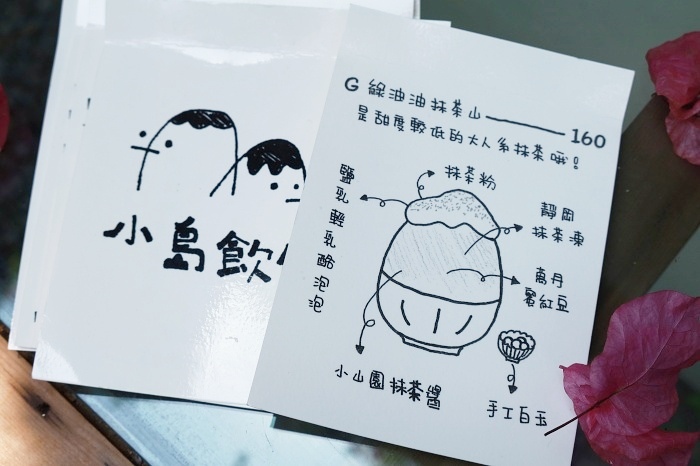 小島飲
G 綠油油抹茶山 160
是甜度較低的大人系抹茶哦!
抹茶粉
鹽乳輕乳酪泡泡
靜岡
抹茶凍
萬丹
蜜紅豆
小山園抹茶醬
手工白玉